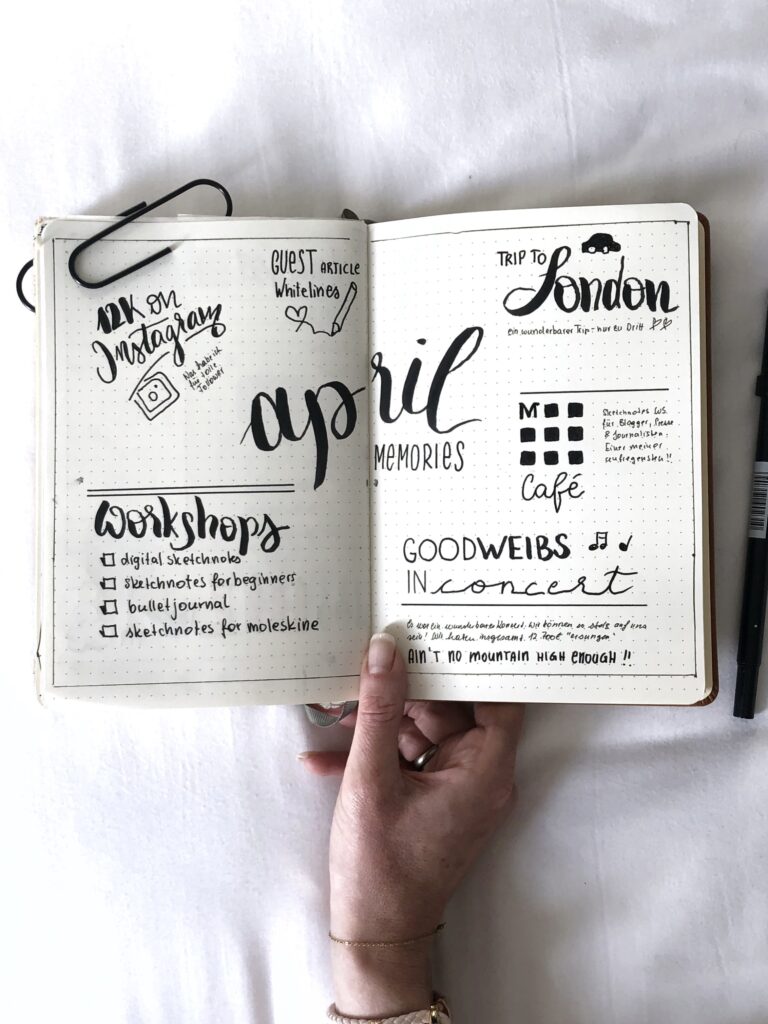 12K on
Instagram
Was hab ich
für tolle
Follower
GUEST ARTICLE
Whitelines
april
MEMORIES
WORKSHOPS
digital sketchnotes
sketchnotes for beginners
bulletjournal
sketchnotes for moleskine
TRIP TO
London
ein wunderbarer Trip - nur zu Dritt
M
Café
Sketchnotes WS.
für Blogger, Presse
& Journalisten.
Einer meiner
aufregensten!!
GOODWEIBS
IN concert
Es war ein wunderbares Konzert. Wir können so stolz auf uns
sein! Wir haben insgesamt 12.700€ "ersungen"
AIN'T NO MOUNTAIN HIGH ENOUGH!!